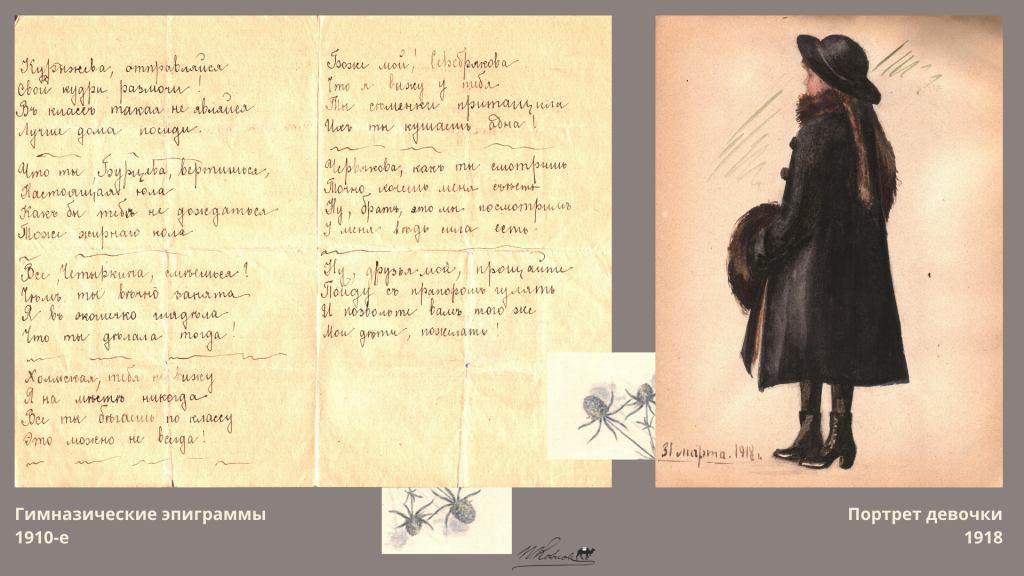 Курынжева, отправляйся
Свои кудри размочи!
Въ классъ такая не являйся
Лучше дома посиди.
Что ты, Бурцева, вертишься,
Настоящая юла
Какъ бы тебѣ не дождаться
Тоже жирнаго кола
Все, Четыркина, смѣешься?
Чѣмъ ты вѣчно занята
Я въ окошечко глядѣла
Что ты дѣлала тогда!
Холмская, тебя не вижу
Я на мѣстѣ никогда
Все ты бѣгаешь по классу
Это можно не всегда!
Боже мой! Серебрякова
Что я вижу у тебя
Ты сѣменки притащила
Ихъ ты кушаешь одна!
Червякова, какъ ты смотришь
Точно хочешь меня съѣсть
Ну, братъ, это мы посмотримъ
У меня вѣдь сила есть.
Ну, друзья мои, прощайте
Пойду съ прапоромъ гулять
И позвольте вамъ того же
Мои дѣти, пожелать!
31 марта. 1918 г.
Гимназические эпиграммы
1910-е
Портрет девочки
1918